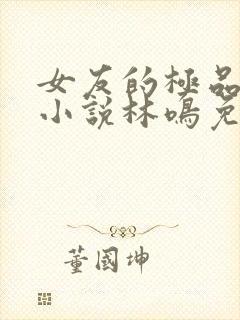 女友的極品
小說林鳴免
董國坤